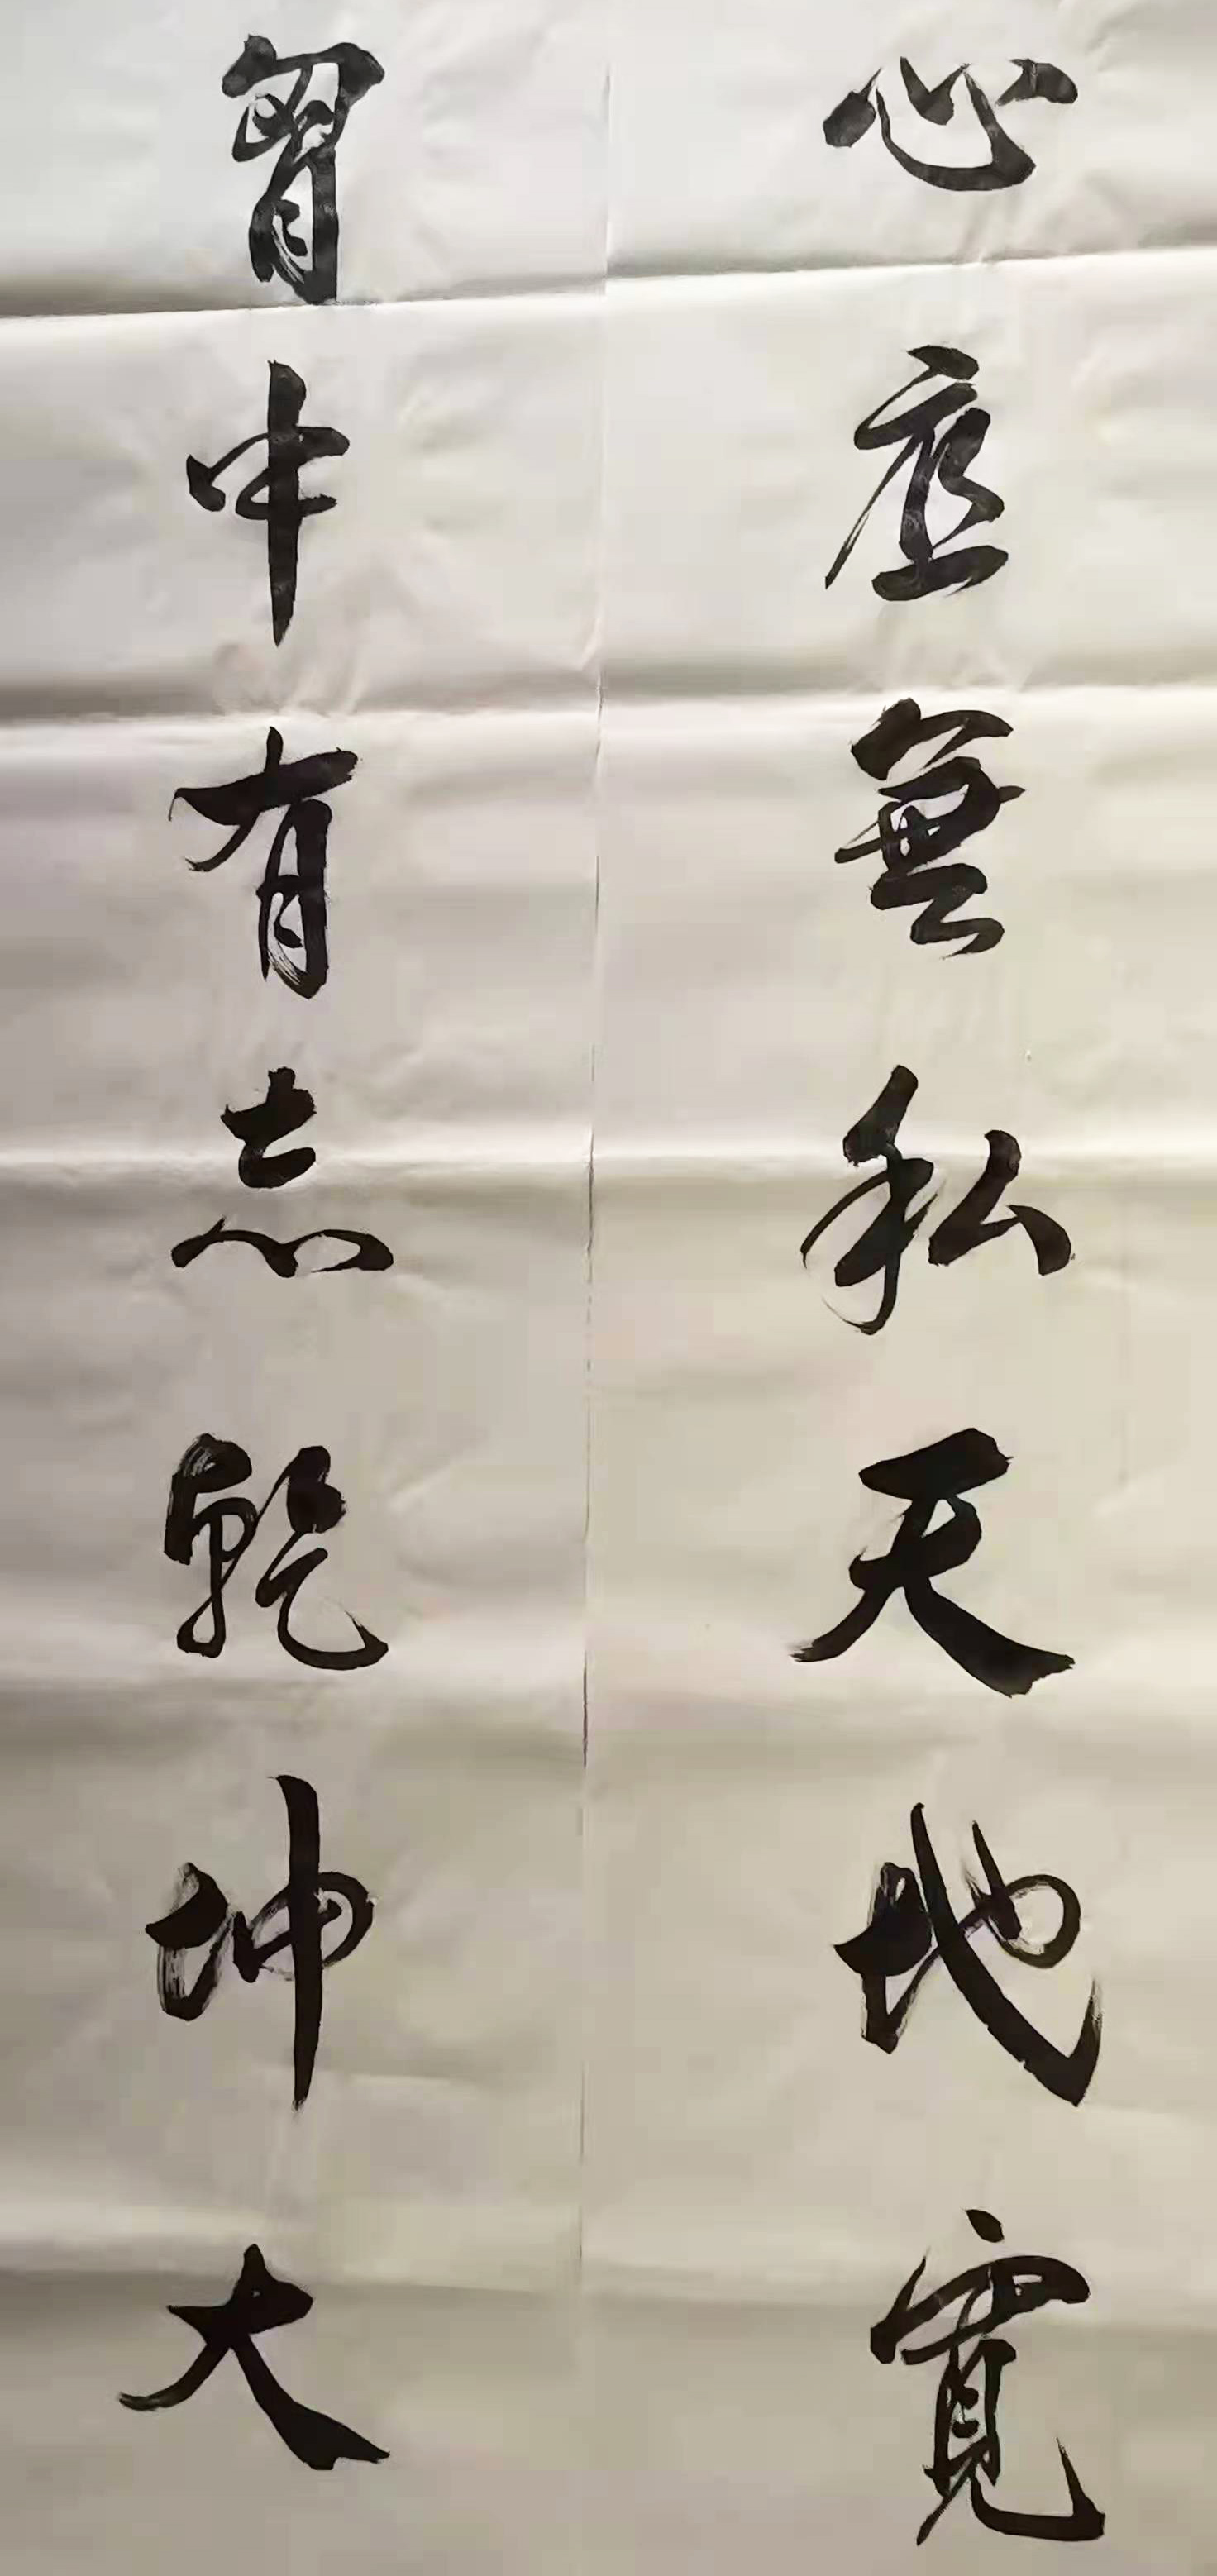 心底無私天地寬
胷中有志乾坤大